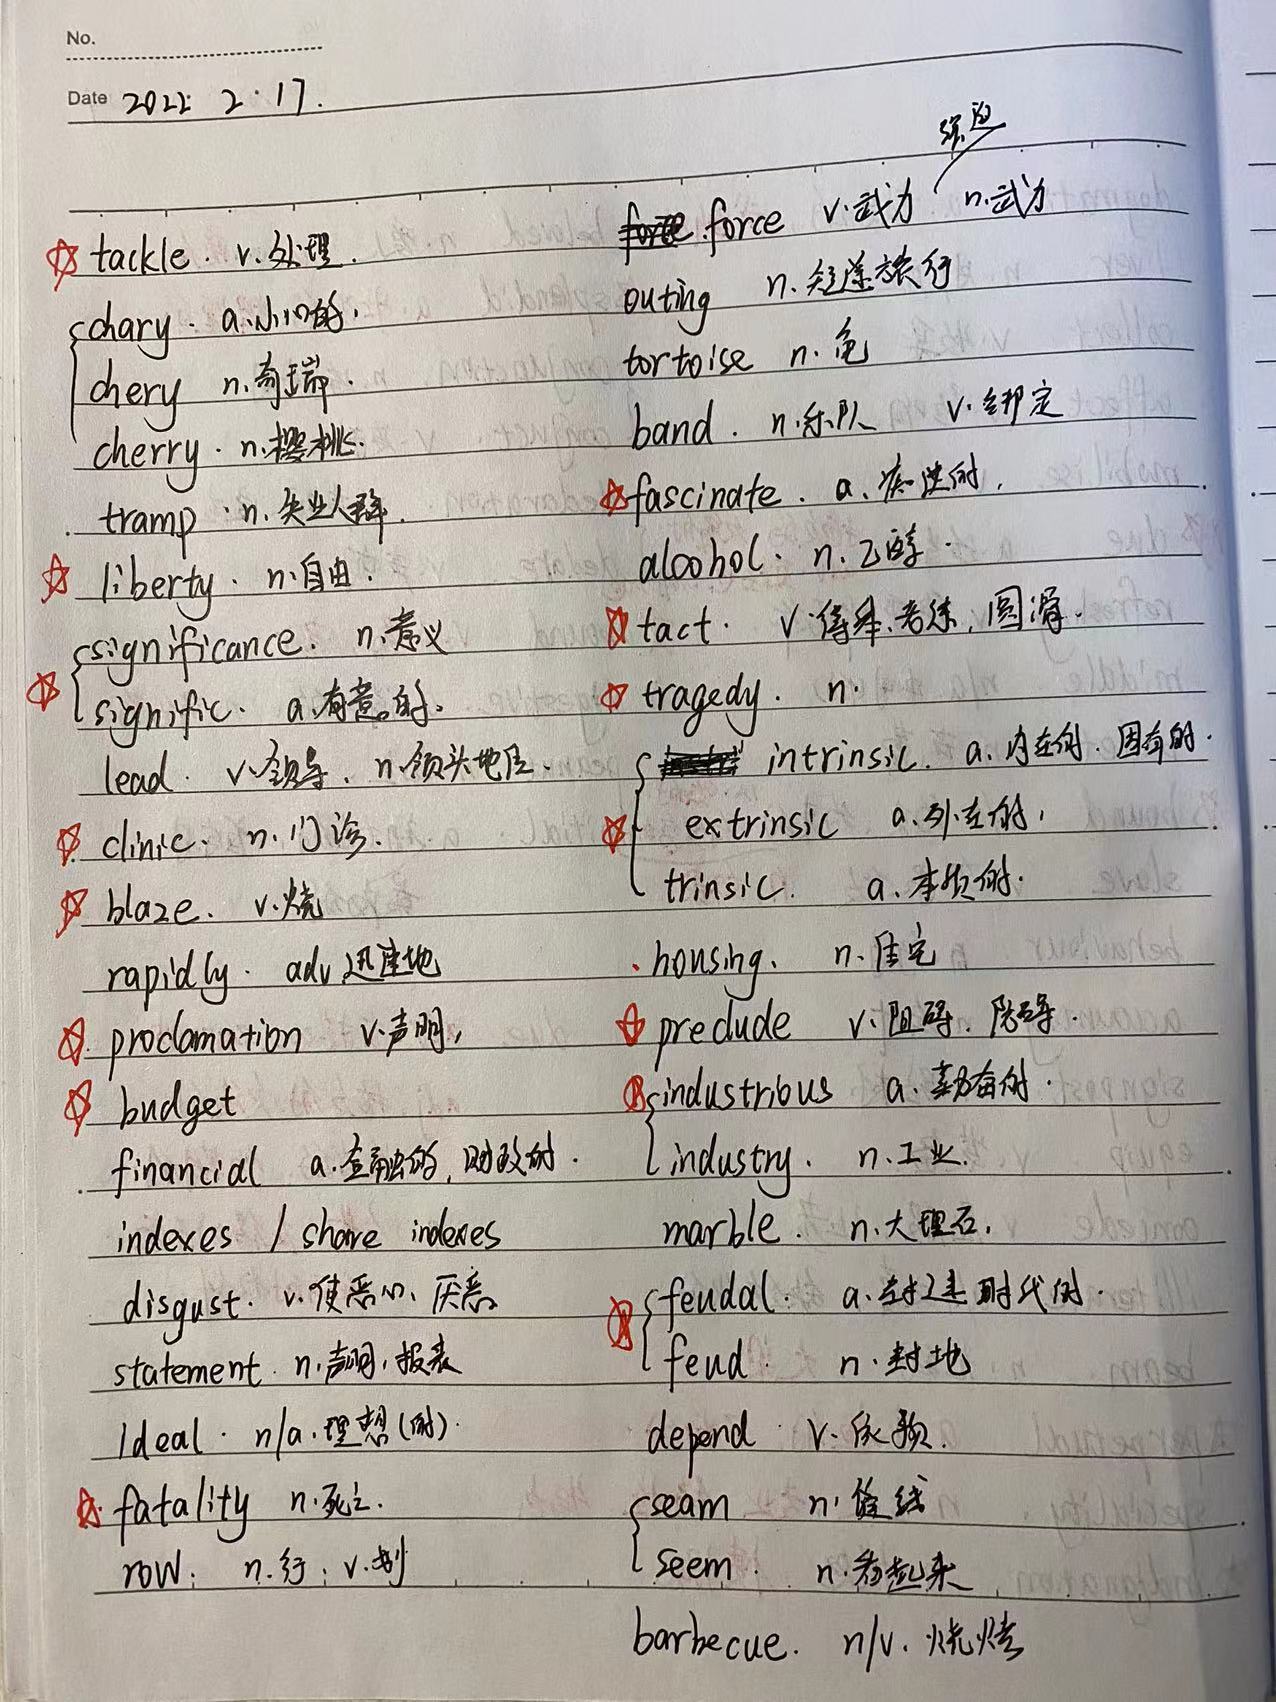 No.
Date 2022 2.17.
tackle. v.处理.
chary. a.小心的.
chery n.奇瑞.
cherry. n.樱桃.
tramp. n.失业人群.
liberty. n.自由.
significance. n.意义
signific. a.有意的.
lead. v.领导. n.领头地位.
clinic. n.门诊.
blaze. v.烧
rapidly. adv 迅速地
proclamation v.声明,
budget
financial a.金融的,财政的.
indexes / share indexes
disgust. v.使恶心、厌恶
statement n.声明,报表
Ideal. n/a.理想(的).
fatality n.死亡.
row. n.行; v.划
强迫
force v.武力 n.武力
outing n.短途旅行
tortoise n.龟
band. n.乐队 v.绑定
fascinate. a.痴迷的.
alcohol. n.乙醇.
tact. v. 老练,圆滑.
tragedy. n.
intrinsic. a.内在的.固有的.
extrinsic a.外在的,
trinsic. a.本质的.
housing. n.住宅
preclude v.阻碍.障碍.
industribus a.勤奋的.
industry. n.工业.
marble. n.大理石.
feudal. a.封建时代的.
feud. n.封地
depend v.依赖.
seam n.缝线
seem. n.看起来
barbecue. n/v.烧烤